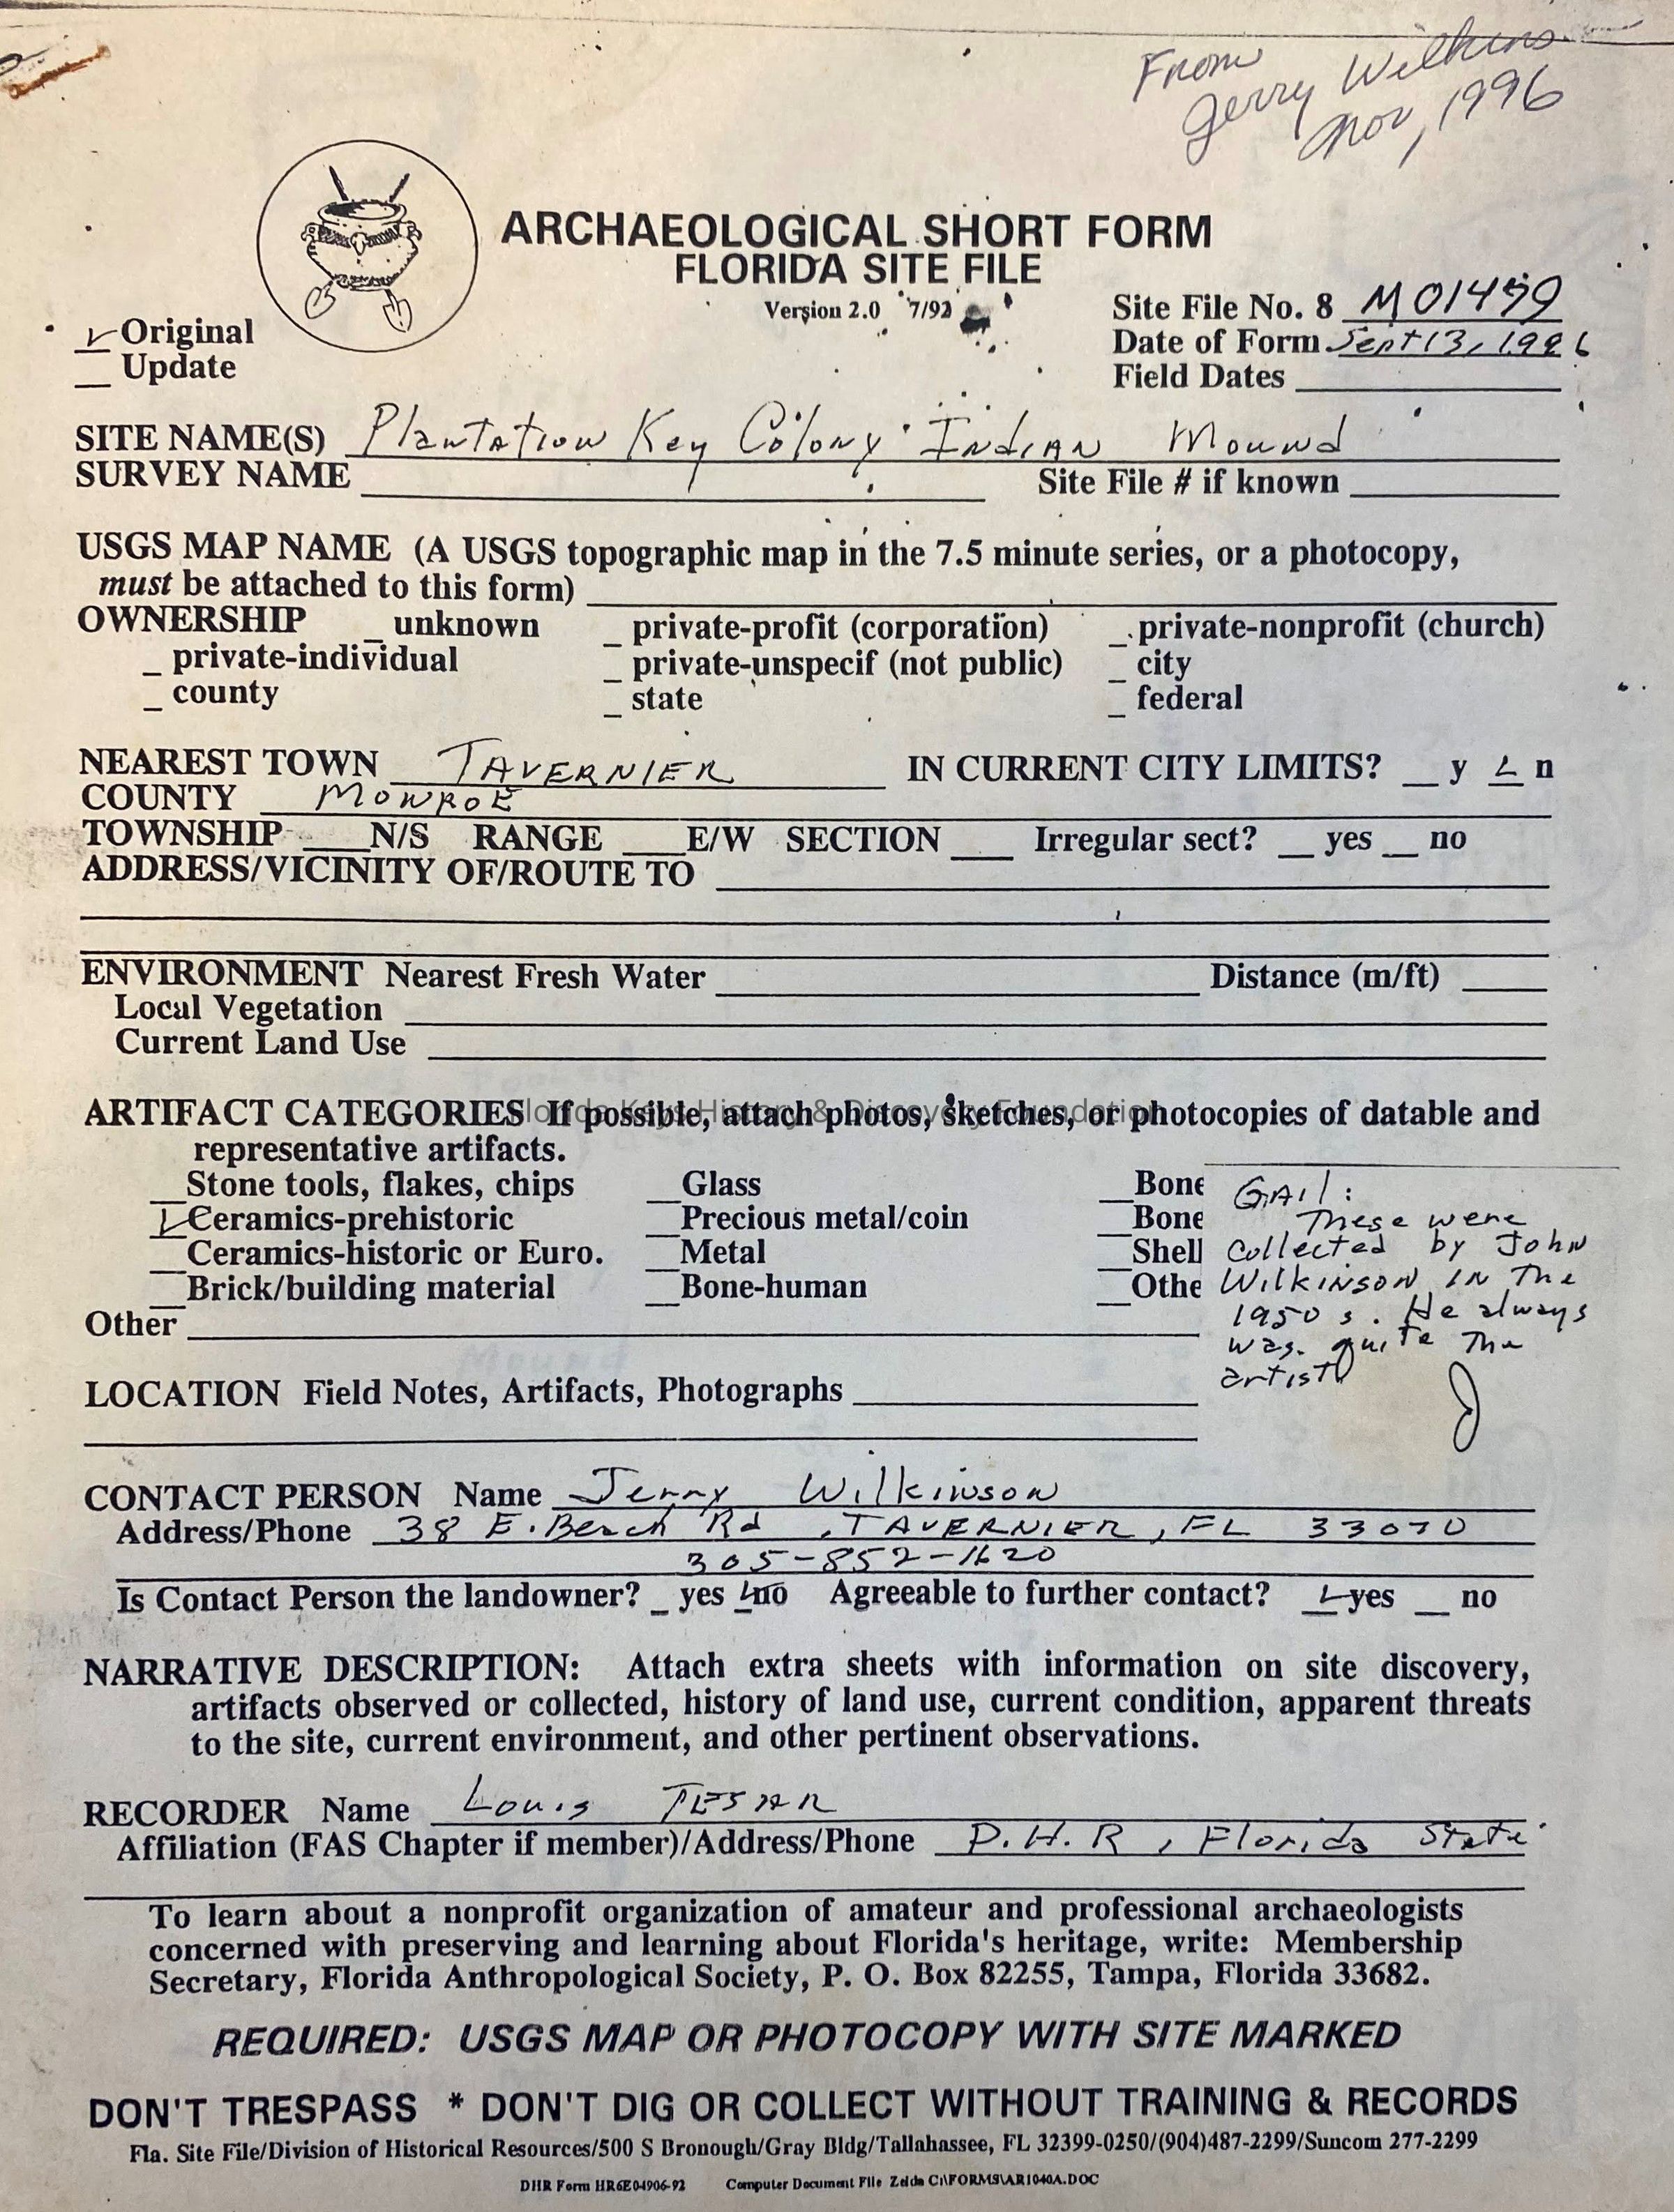 From
Jerry Wilkins
Nov, 1996
ARCHAEOLOGICAL SHORT FORM
FLORIDA SITE FILE
Version 2.0 7/92
Original
Update
Site File No. 8
Date of Form Sept 13, 1996
Field Dates
SITE NAME(S) Plantation Key Colony Indian Mound
SURVEY NAME Site File # if known
USGS MAP NAME (A USGS topographic map in the 7.5 minute series, or a photocopy,
must be attached to this form)
OWNERSHIP _ unknown _ private-profit (corporation) _ private-nonprofit (church)
_ private-individual _ private-unspecif (not public) _ city
_ county _ state _ federal
NEAREST TOWN TAVERNIER IN CURRENT CITY LIMITS? __ y __ n
COUNTY MONROE
TOWNSHIP ___N/S RANGE ___E/W SECTION ___ Irregular sect? __ yes __ no
ADDRESS/VICINITY OF/ROUTE TO
ENVIRONMENT Nearest Fresh Water Distance (m/ft)
Local Vegetation
Current Land Use
Florida Keys History & Discovery Foundation
ARTIFACT CATEGORIES If possible, attach photos, sketches, or photocopies of datable and
representative artifacts.
__Stone tools, flakes, chips __Glass __Bone
__Ceramics-prehistoric __Precious metal/coin __Bone
__Ceramics-historic or Euro. __Metal __Shell
__Brick/building material __Bone-human __Othe
Other
GAIL:
These were
collected by John
Wilkinson in the
1950s. He always
was quite the
artist
J
LOCATION Field Notes, Artifacts, Photographs
CONTACT PERSON Name Jerry Wilkinson
Address/Phone 38 E. Beach Rd, TAVERNIER, FL 33070
305-852-1620
Is Contact Person the landowner? _ yes _ no Agreeable to further contact? __ yes __ no
NARRATIVE DESCRIPTION: Attach extra sheets with information on site discovery,
artifacts observed or collected, history of land use, current condition, apparent threats
to the site, current environment, and other pertinent observations.
RECORDER Name Louis TESAR
Affiliation (FAS Chapter if member)/Address/Phone D.H.R, Florida State
To learn about a nonprofit organization of amateur and professional archaeologists
concerned with preserving and learning about Florida's heritage, write: Membership
Secretary, Florida Anthropological Society, P. O. Box 82255, Tampa, Florida 33682.
REQUIRED: USGS MAP OR PHOTOCOPY WITH SITE MARKED
DON'T TRESPASS * DON'T DIG OR COLLECT WITHOUT TRAINING & RECORDS
Fla. Site File/Division of Historical Resources/500 S Bronough/Gray Bldg/Tallahassee, FL 32399-0250/(904)487-2299/Suncom 277-2299
DHR Form HR6E04906-92 Computer Document File Zelda C:\FORMS\AR1040A.DOC